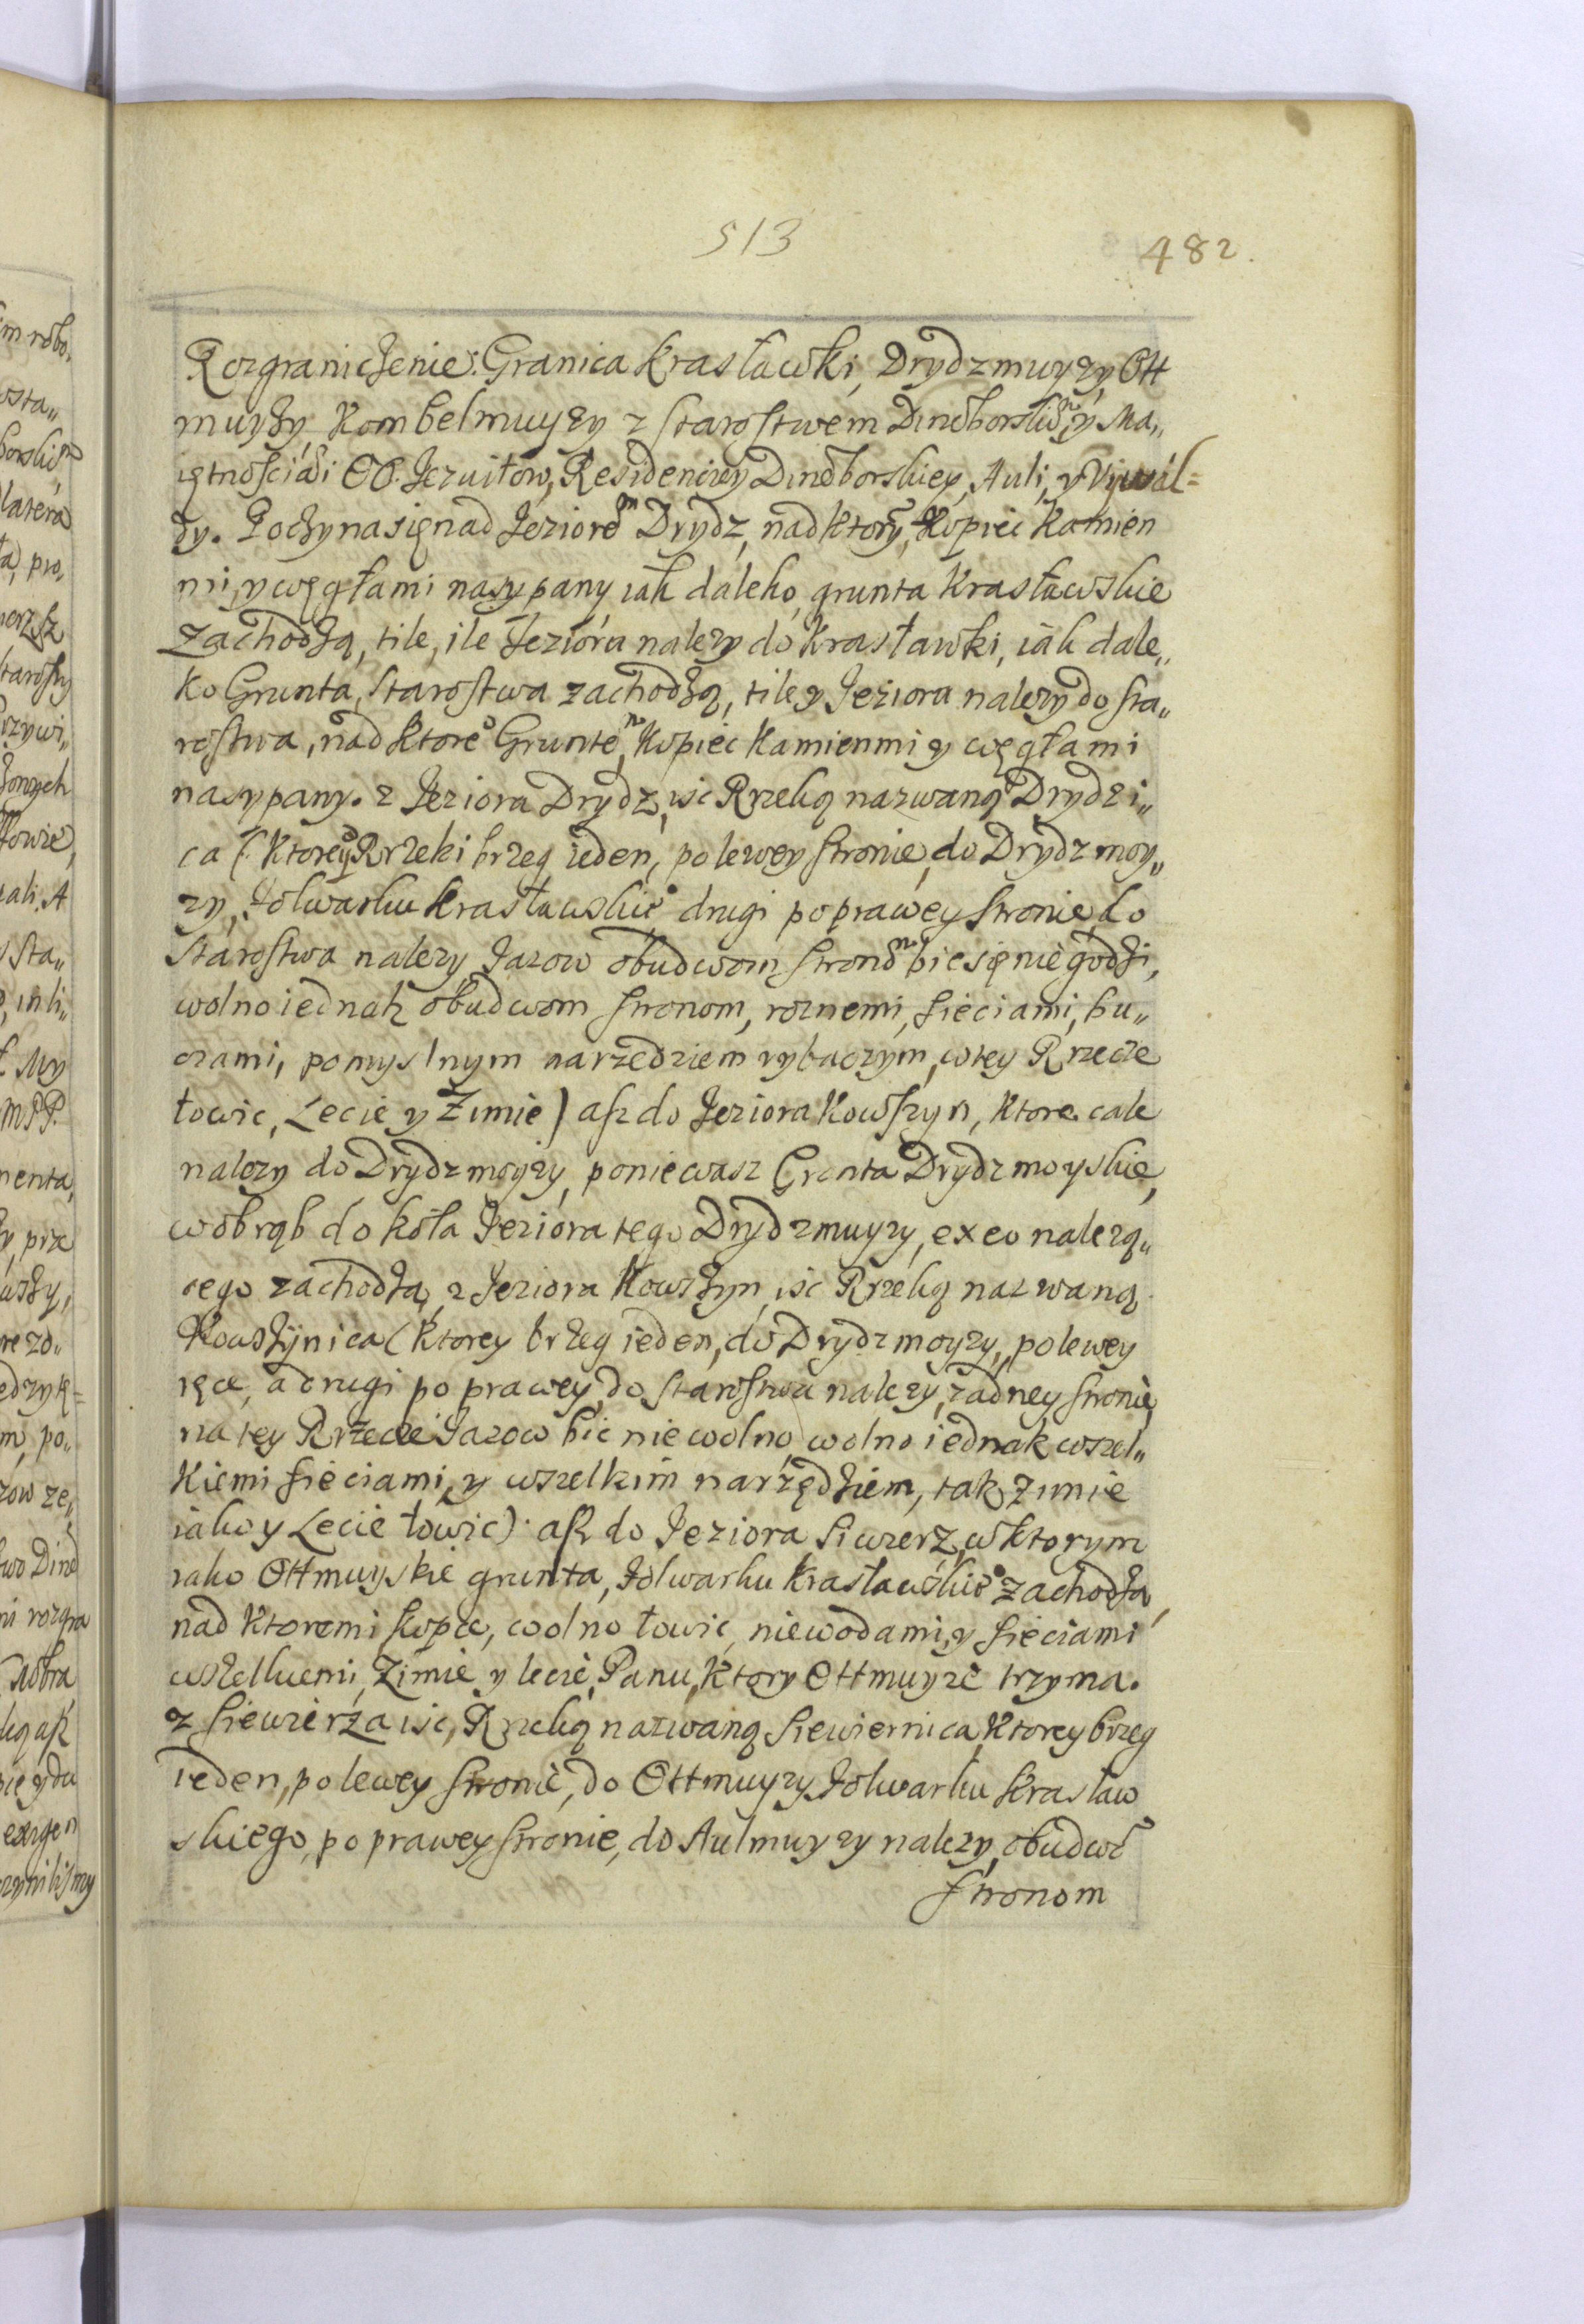 513
482.
Rozgraniczenie: Granica Krasławki, Drydzmuyzy, Ott
muyży Kombelmuyzy z Starostwem Dineborskiem, y Ma„
iętnościami OO. Jezuitow, Residencyey Dineborskiey, Auli, y Viwal=
dy. Poczyna się nad Jeziorem Drydz, nad ktorym, Kopiec Kamien
mi, y węgłami nasypany, iak daleko, grunta Krasławskie
zachodzą, tile, ile Jeziora nalezy do Krasławki, iak dale„
ko Grunta, Starostwa zachodzą, tile y Jeziora nalezy do sta„
rostwa, nad ktorego Gruntem, Kopiec Kamienmi y węgłami
nasypany. z Jeziora Drydz, isc Rzeką nazwaną Drydzi„
ca (: ktorey Rzeki brzeg ieden, po lewey stronie, do Drydzmoy„
zy, Folwarku Krasławskie° drugi po prawey stronie, do
Starostwa nalezy Jazow obudwom stronom bic się nie godzi,
wolno iednak obudwom stronom, roznemi, sieciami, bu„
czami, pomyslnym narzędziem rybaczym, w tey Rzecze
łowic, Lecie y Zimie) asz do Jeziora Kowszyn, ktore cale
nalezy do Drydzmoyzy, poniewasz Grunta Drydzmoyskie,
wobrąb do koła Jeziora tego Drydzmuyzy, ex eo nalezą„
cego zachodzą, z Jeziora Kowszyn, isc Rzeką nazwaną
Kowszynica (ktorey brzeg ieden, do Drydzmoyzy, po lewey
ręce, a drugi po prawey, do Starostwa nalezy, zadney stronie,
na tey Rzecze Jazow bic nie wolno, wolno iednak wszel„
kiemi sieciami, y wszelkim narzędziem, tak Zimie
iako y Lecie łowic) asz do Jeziora Siwerz, w ktorym
iako Ottmuyskie grunta, Folwarku Krasławskie° zachodzą,
nad ktoremi kopce, wolno łowic, niewodami, y sieciami
wszelkiemi, Zimie y lecie, Panu, ktory Ottmuyze trzyma.
z Siewierza isc, Rzeką nazwaną Siewiernica ktorey brzeg
ieden, po lewey stronie, do Ottmuyzy Folwarku Krasław
skiego, po prawey stronie, do Aulmuyzy nalezy, obudwom
stronom